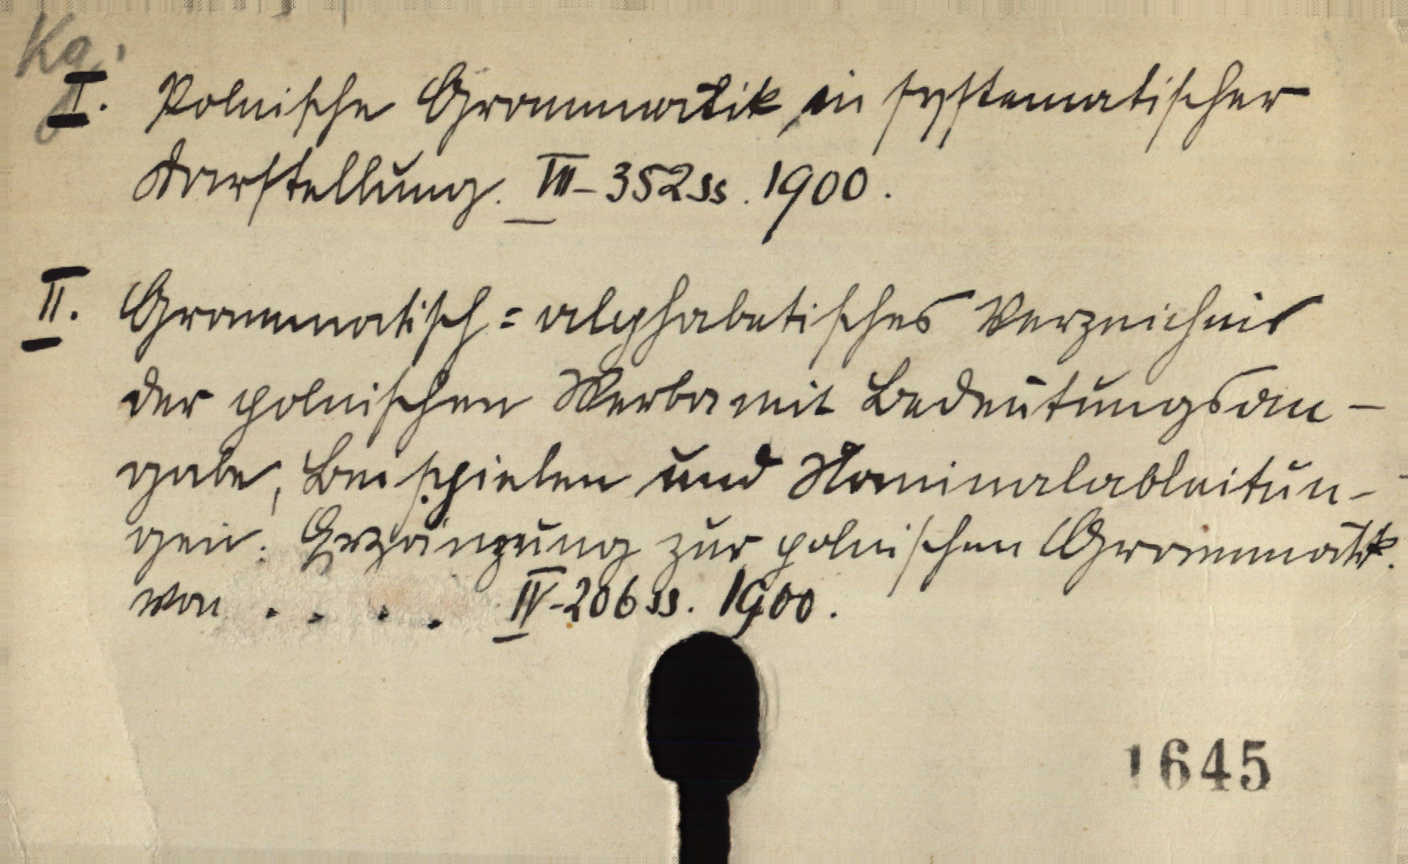 Ka.
I. Polnische Grammatik in systematischer
Darstellung. III-352 ss. 1900.
II. Grammatisch = alphabetisches Verzeichnis
der polnischen Verba mit Bedeutungsan-
gabe, Beispielen und Nominalableitun-
gen. Ergänzung zur polnischen Grammatik.
von . . . . IV-206 ss. 1900.
1645